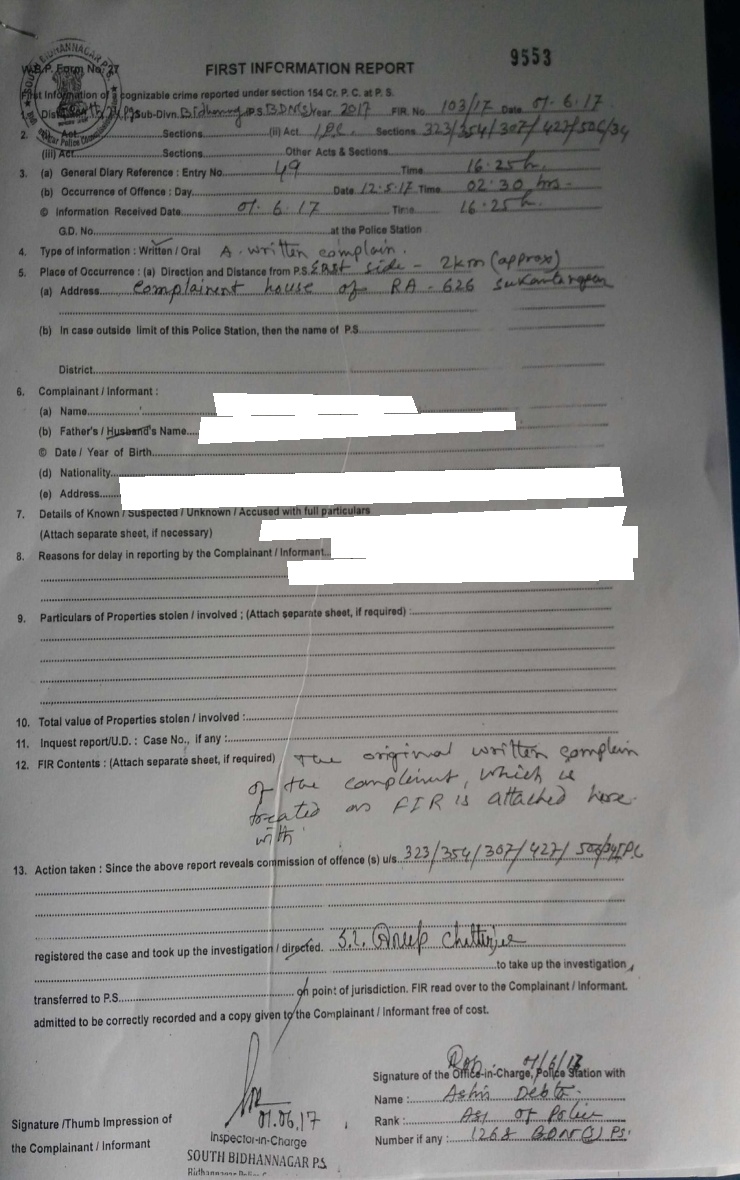 9553
W.B.P. Form No. 27
FIRST INFORMATION REPORT
First Information of cognizable crime reported under section 154 Cr. P. C. at P. S.
1. Dist. Sub-Divn. Bidhannagar P.S. BDN(S) Year 2017 FIR. No. 103/17 Date 01.6.17
2. (i) Act Sections (ii) Act. IPC. Sections 323/354/307/427/506/34
(iii) Act Sections Other Acts & Sections
3. (a) General Diary Reference : Entry No. 49 Time 16.25 h.
(b) Occurrence of Offence : Day Date 12.5.17 Time 02.30 hrs.
© Information Received Date 01.6.17 Time 16.25 h.
G.D. No. at the Police Station
4. Type of Information : Written / Oral A written complain.
5. Place of Occurrence : (a) Direction and Distance from P.S. East side - 2km (approx)
(a) Address Complainent house of RA - 626
(b) In case outside limit of this Police Station, then the name of P.S.
District
6. Complainant / Informant :
(a) Name
(b) Father's / Husband's Name
© Date / Year of Birth
(d) Nationality
(e) Address
7. Details of Known / Suspected / Unknown / Accused with full particulars
(Attach separate sheet, if necessary)
8. Reasons for delay in reporting by the Complainant / Informant
9. Particulars of Properties stolen / involved ; (Attach separate sheet, if required) :
10. Total value of Properties stolen / involved :
11. Inquest report/U.D. : Case No., if any :
12. FIR Contents : (Attach separate sheet, if required) The original written complain
of the complainent, which is
treated as FIR is attached here
with
13. Action taken : Since the above report reveals commission of offence (s) u/s. 323/354/307/427/ IPC
registered the case and took up the investigation / directed. S.I. Anup Chatterjee
to take up the investigation
transferred to P.S. on point of jurisdiction. FIR read over to the Complainant / Informant.
admitted to be correctly recorded and a copy given to the Complainant / Informant free of cost.
01/6/17
Signature of the Office-in-Charge, Police Station with
Name : Debta
01.06.17
Rank : ASI of Police
Signature /Thumb Impression of
Inspector-in-Charge
Number if any : 1268 BDN(S) PS.
the Complainant / Informant
SOUTH BIDHANNAGAR P.S